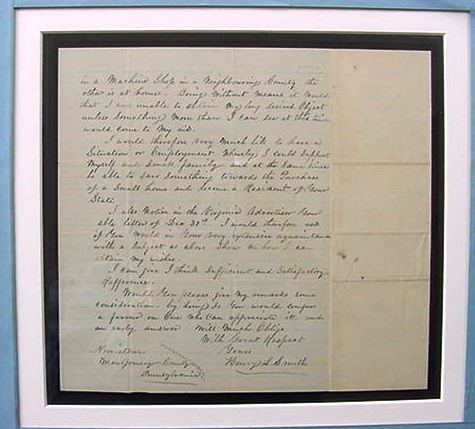 in a Machine Shop in a Neighbouring County the
other is at home. Being without means it would
that I am unable to obtain my long desired Object
unless something more than I can see at this time
would come to My aid.
I would therefore very much like to have a
Situation or Employment whereby I could Support
Myself and Small family and at the same time
be able to save something towards the Purchase
of a Small home and become a Resident of Your
State.
I also Notice in the Virginia Advertiser Your
able letter of Dec 31st I would therefore ask
if You would in Your very extensive acquaintance
with a Subject as above Show me how I can
obtain my wishes.
I can give I think Sufficient and Satisfactory
Refference.
Would You please give my remarks some
consideration by doing so You would confer
a favor on One who can appreciate it, and
an early answer will Much Oblige
With Great Respect
Yours
Henry S. Smith
Montgomery County
Pennsylvania